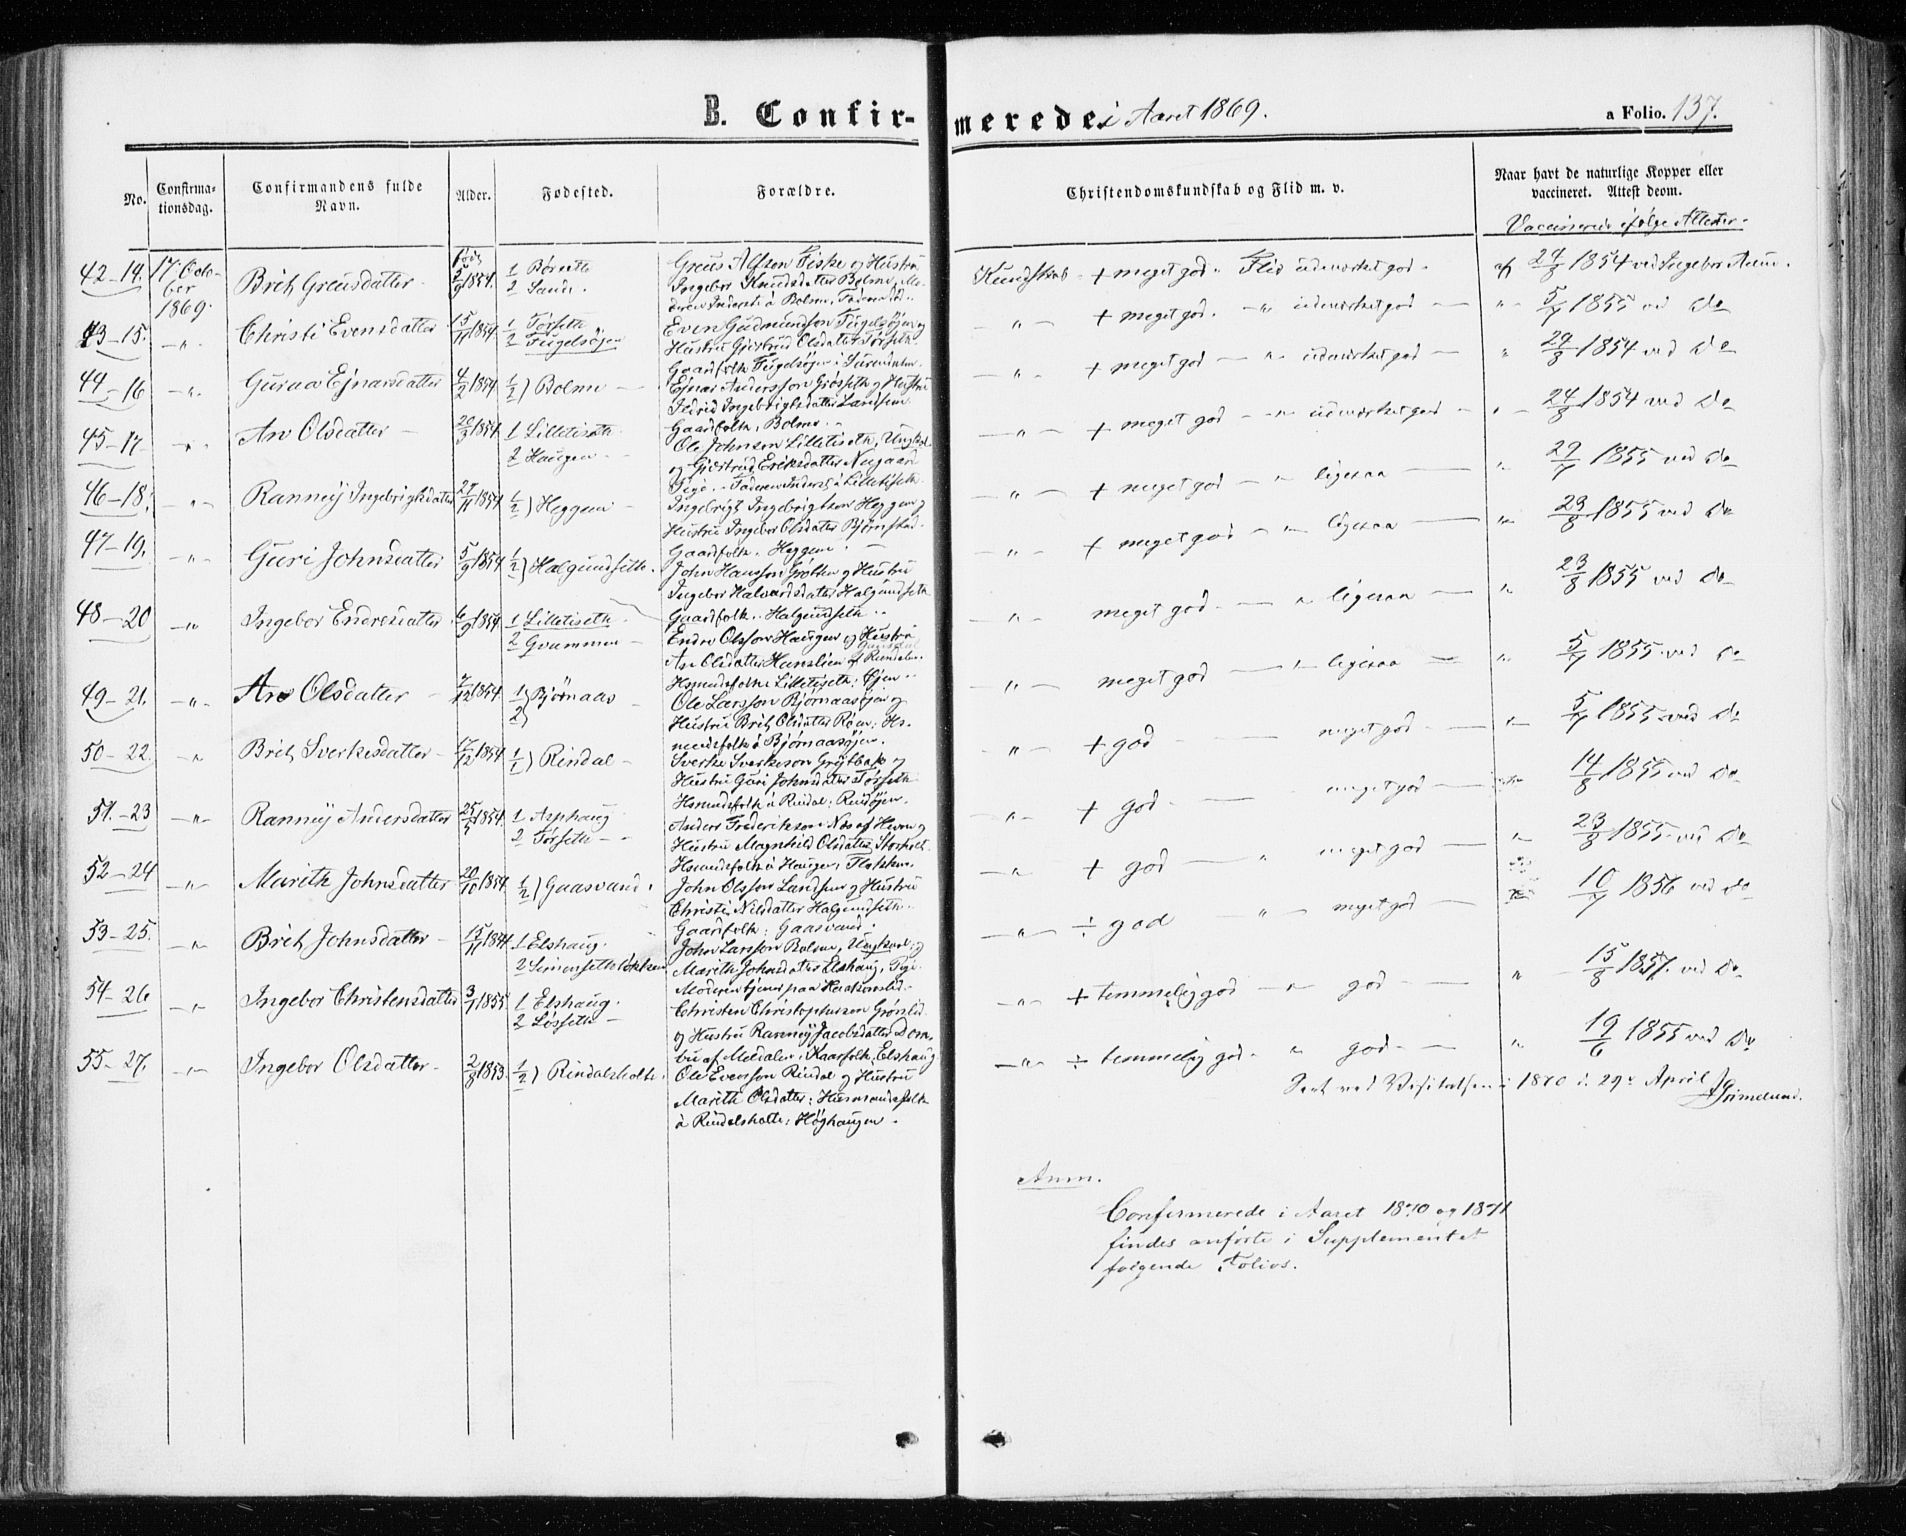 B. Confirmerede i Aaret 1869.
a Folio. 137.
No.
Confirma-
tionsdag.
Confirmandens fulde
Navn.
Alder.
Fødested.
Forældre.
Christendomskundskab og Flid m. v.
Naar havt de naturlige Kopper eller
vaccineret. Attest deom.
Vaccinerede ifølge Attester.
42-14. 17. Octo-
ber
1869.
Brit Greusdatter
født 5/9 1854.
2 Sande.
Greus Alfson Fiske og Hustru
Ingebor Knudsdatter Bolme, Mo-
Kundskab + meget god. Flid udmærket god.
af 24/8 1854 ved Ingebor Aune.
43-15. -"- Christi Evensdatter
15/11 1854
1 Torseth
2 Fugelsöjen
Even Gudmundson Fugelsöjen og
Hustru Gjertrud Olsdatter Torseth
Gaardfolk Fugelsöjen i Surendalen.
-"- + meget god. -"- udmærket god - " 5/7 1855 ved Do
44-16 -"- Guraa Ejnarsdatter
4/2 1854
1/2) Bolme
Ejnar Andersson Grøseth og Hustru
Ildrid Ingebrigtsdatter Landsem
Gaardfolk, Bolme.
-"- + meget god - " udmærket god - " 29/8 1854 ved Do
45-17 -"- An Olsdatter
1 Lilletiseth.
2 Haugen
Ole Johnson Lilletiseth, Ungkal
og Gjertrud Eriksdatter Nygaard
Pige. Faderen Inderst å Lilletiseth.
-"- + meget god - " - udmærket god - " 24/8 1854 ved Do
46-18. -"- Ranney Ingebrigtsdatter
27/11 1854
1/2) Heggem
Ingebrigt Ingebrigtson Heggem og
Hustru Ingebor Olsdatter Bjørnstad.
Gaardfolk. Heggem.
-"- + meget god - " - ligesaa - " 29/7 1855 ved Do
47-19. -"- Guri Johnsdatter
5/9 1854
1/2) Halgundseth.
John Hansson Grötten og Hustru
Ingebor Halvardsdatter Halgundseth
Gaardfolk. Halgundseth.
-"- + meget god - " - ligesaa - " 23/8 1855 ved Do
48-20 -"- Ingebor Endresdatter
6/9 1854
1 Lilletiseth.
2 Gvammen
Endre Olsson Haugen og Hustru
An Olsdatter Hanslien af Rindalen
Hsmandsfolk Lilletiseth: Ejen.
-"- meget god - " ligesaa - " 23/8 1855 ved Do
49-21. -"- An Olsdatter
1/2) Bjørnaas
Ole Larsson Bjørnaasøjen og
Hustru Brit Olsdatter Røen: Hs-
mandsfolk å Bjørnaasøjen.
-"- meget god - " ligesaa - " 5/7 1855 ved Do
50-22. -"- Brit Sverkesdatter
1/1) Rindal
Sverke Sverkeson Grøtbak og
Hustru Guri Johnsdatter Torseth
Hsmandsfolk å Rindal: Rindøjen.
-"- + god - meget god - " 5/7 1855 ved Do
51-23 -"- Ranney Andersdatter
25/5 1854.
1 Asphaug
2 Torseth
Anders Frederikson Nes af Hevne og
Hustru Magnhild Olsdatter Storholt
Hsmandsfolk å Haugen: Flokken.
-"- + god - meget god - 14/8 1855 ved Do
52-24 -"- Marith Johnsdatter
20/10 1854
1/2) Gaasvand.
John Olsson Landsem og Hustru
Christi Nilsdatter Halgundseth.
Gaardfolk: Gaasvand.
-"- + god - " meget god - " 23/8 1855 ved Do
53-25. -"- Brit Johnsdatter
1 Elshaug.
2 Simonsethløkken
John Larsson Bolme, Ungkarl og
Marith Johnsdatter Elshaug, Pige.
Moderen tjener paa Haakonslid.
-"- ÷ god - " - meget god - 10/7 1856 ved Do
54-26 -"- Ingebor Christensdatter
3/1 1855
1 Elshaug.
2 Løsseth
Christen Christophersen Grønlid
og Hustru Ranney Jacobsdatter Dom-
bu af Meldalen: Kaarfolk. Elshaug.
-"- + temmelig god - " - god - " 15/8 1857. ved Do
55-27. -"- Ingebor Olsdatter
2/8 1853.
1/2) Rindalsholte.
Ole Evenson Rindal og Hustru
Marith Olsdatter: Husmandsfolk
å Rindalsholte: Høghaugen.
-"- ÷ temmelig god - " god - " 19/6 1855 ved Do
Seet ved Visitatsen i 1870 d. 29de April Grimelund.
Anm.
Confirmerede i Aaret 1870 og 1871
findes anførte i Supplementet
følgende Folios.